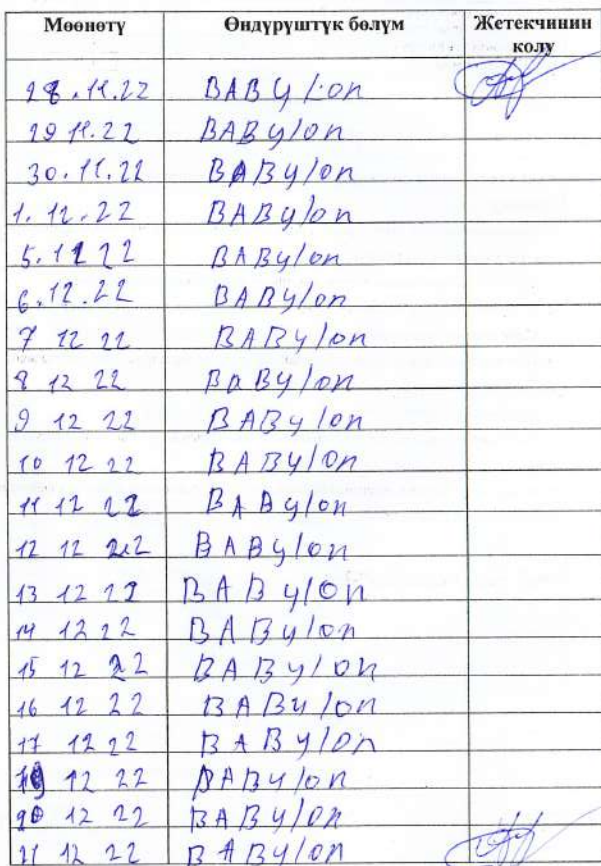 Мөөнөтү Өндүрүштүк бөлүм Жетекчинин колу
28.11.22 BABY/on
29 11.22 BABY/on
30.11.22 BABY/on
1.12.22 BABY/on
5.12 22 BABY/on
6.12.22 BABY/on
7 12 22 BABY/on
8 12 22 BaBY/on
9 12 22 BABY/on
10 12 22 BABY/on
11 12 22 BABY/on
12 12 22 BABY/on
13 12 22 BABY/on
14 12 22 BABY/on
15 12 22 BABY/on
16 12 22 BABY/on
17 12 22 BABY/on
19 12 22 BABY/on
20 12 22 BABY/on
21 12 22 BABY/on